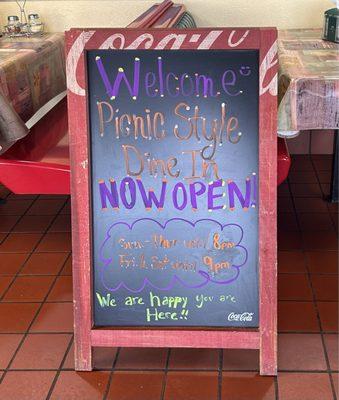 Coca-Cola
Welcome
Picnic Style
Dine In
NOW OPEN!
Sun - Thur until 8pm
Fri & Sat until 9pm
We are HAPPY you are
Here!!
Coca-Cola